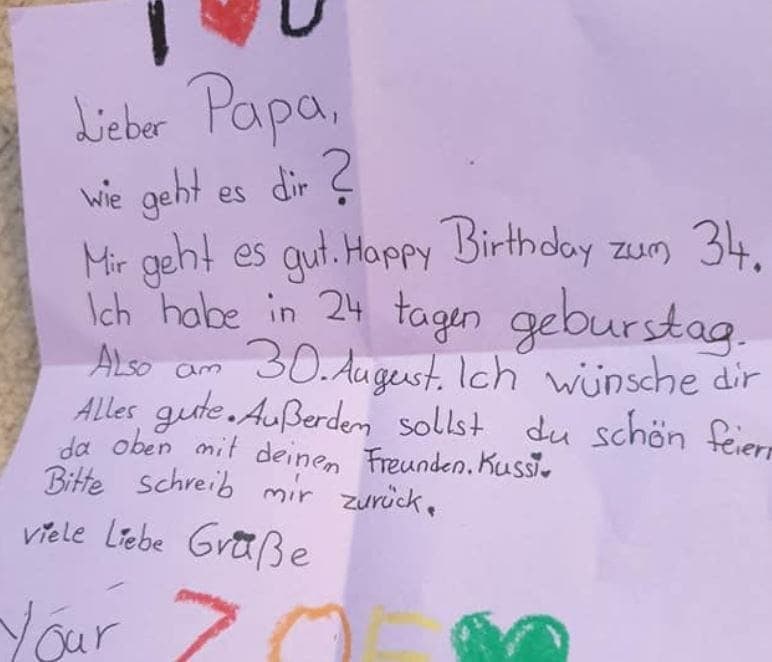 I ♥ U
Lieber Papa,
Wie geht es dir?
Mir geht es gut. Happy Birthday zum 34.
Ich habe in 24 tagen geburstag.
Also am 30. August. Ich wünsche dir
Alles gute. Außerdem sollst du schön feiern
da oben mit deinen Freunden. Kussi.
Bitte schreib mir zurück.
viele Liebe Grüße
Your ZOE ♥